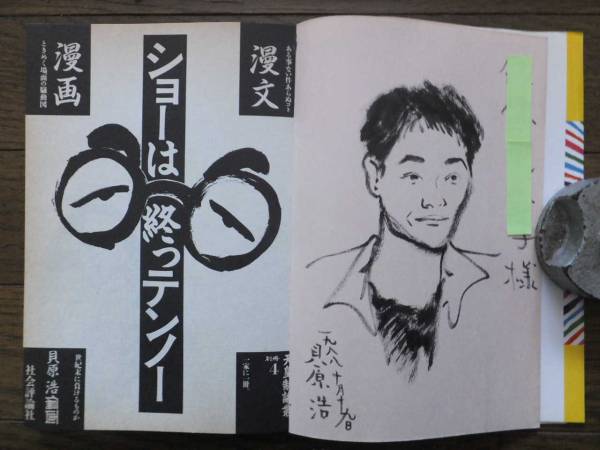 漫画
ときめく場面の騒動図
ショーは終ってテンノー
漫文
ある事ない件あらぬコト
世紀末に負けるものか
貝原浩
社会評論社
別冊
4
一家に一冊、
様
一九八八十月十九日
貝原浩